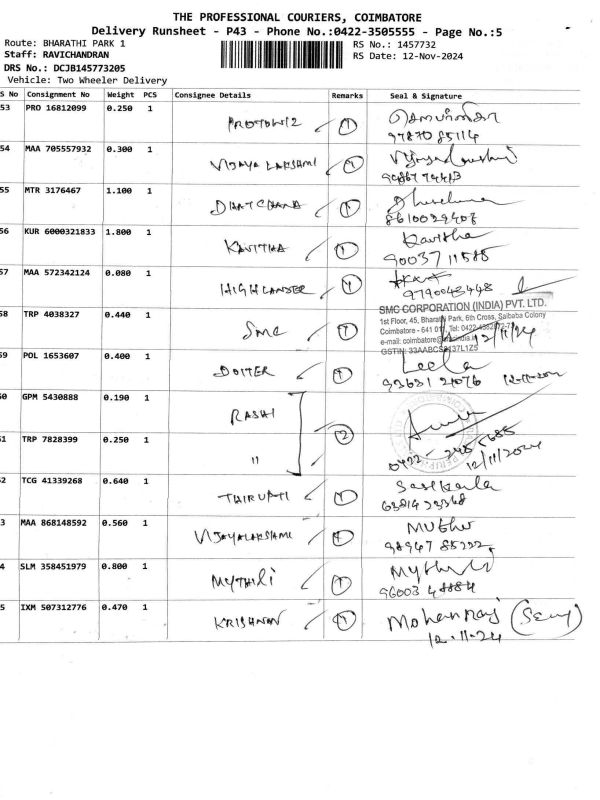 THE PROFESSIONAL COURIERS, COIMBATORE
Delivery Runsheet - P43 - Phone No.:0422-3505555 - Page No.:5
Route: BHARATHI PARK 1 RS No.: 1457732
Staff: RAVICHANDRAN RS Date: 12-Nov-2024
DRS No.: DCJB145773205
Vehicle: Two Wheeler Delivery
S No Consignment No Weight PCS Consignee Details Remarks Seal & Signature
53 PRO 16812099 0.250 1 1
97870 85114
54 MAA 705557932 0.300 1 VIJAYA LAKSHMI 1
55 MTR 3176467 1.100 1 1
8610029408
56 KUR 6000321833 1.800 1 KAVITHA 1 Kavitha
90037 11588
57 MAA 572342124 0.080 1 HIGHLANDER 1
9790043448
58 TRP 4038327 0.440 1 SMC 1 SMC CORPORATION (INDIA) PVT. LTD.
1st Floor, 45, Bharathi Park, 6th Cross, Saibaba Colony
Coimbatore - 641 011, Tel: 0422-
e-mail: coimbatore@smcindia.in 12/11/24
GSTIN: 33AABCS
59 POL 1653607 0.400 1 DOITER 1 Leela
93631 21076
60 GPM 5430888 0.190 1 RASHI 2
61 TRP 7828399 0.250 1 "
0422- 12/11/2024
62 TCG 41339268 0.640 1 THIRUPTI 1 Sasikala
63 MAA 868148592 0.560 1 VIJAYALAKSHMI 1 Muthu
98947 85222
64 SLM 358451979 0.800 1 MYTHILI 1
96003 48884
65 IXM 507312776 0.470 1 KRISHNAN 1 Mohanraj
12-11-24